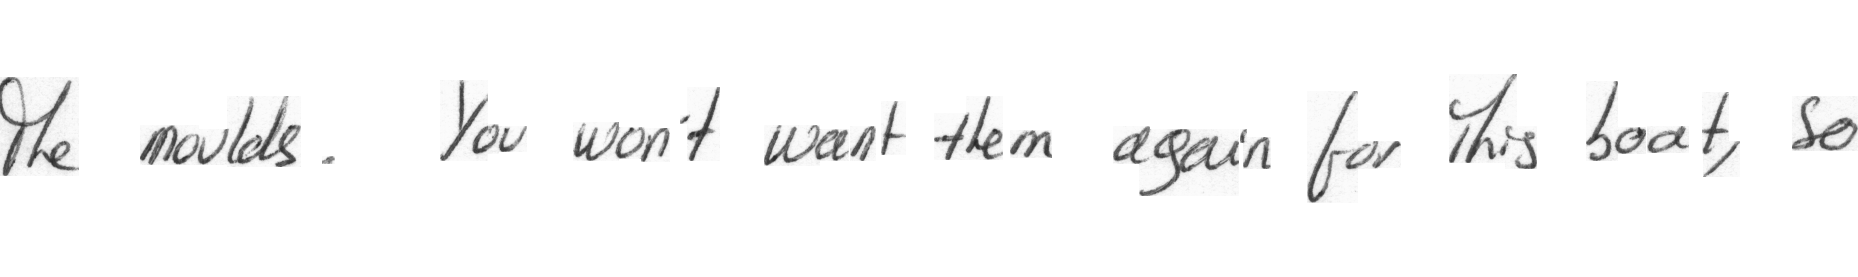 The moulds. You won't want them again for this boat, so